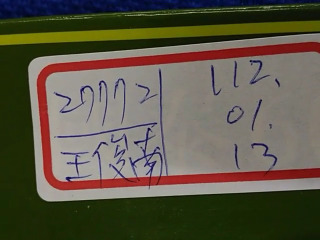 27772
王俊南
112.
01.
13